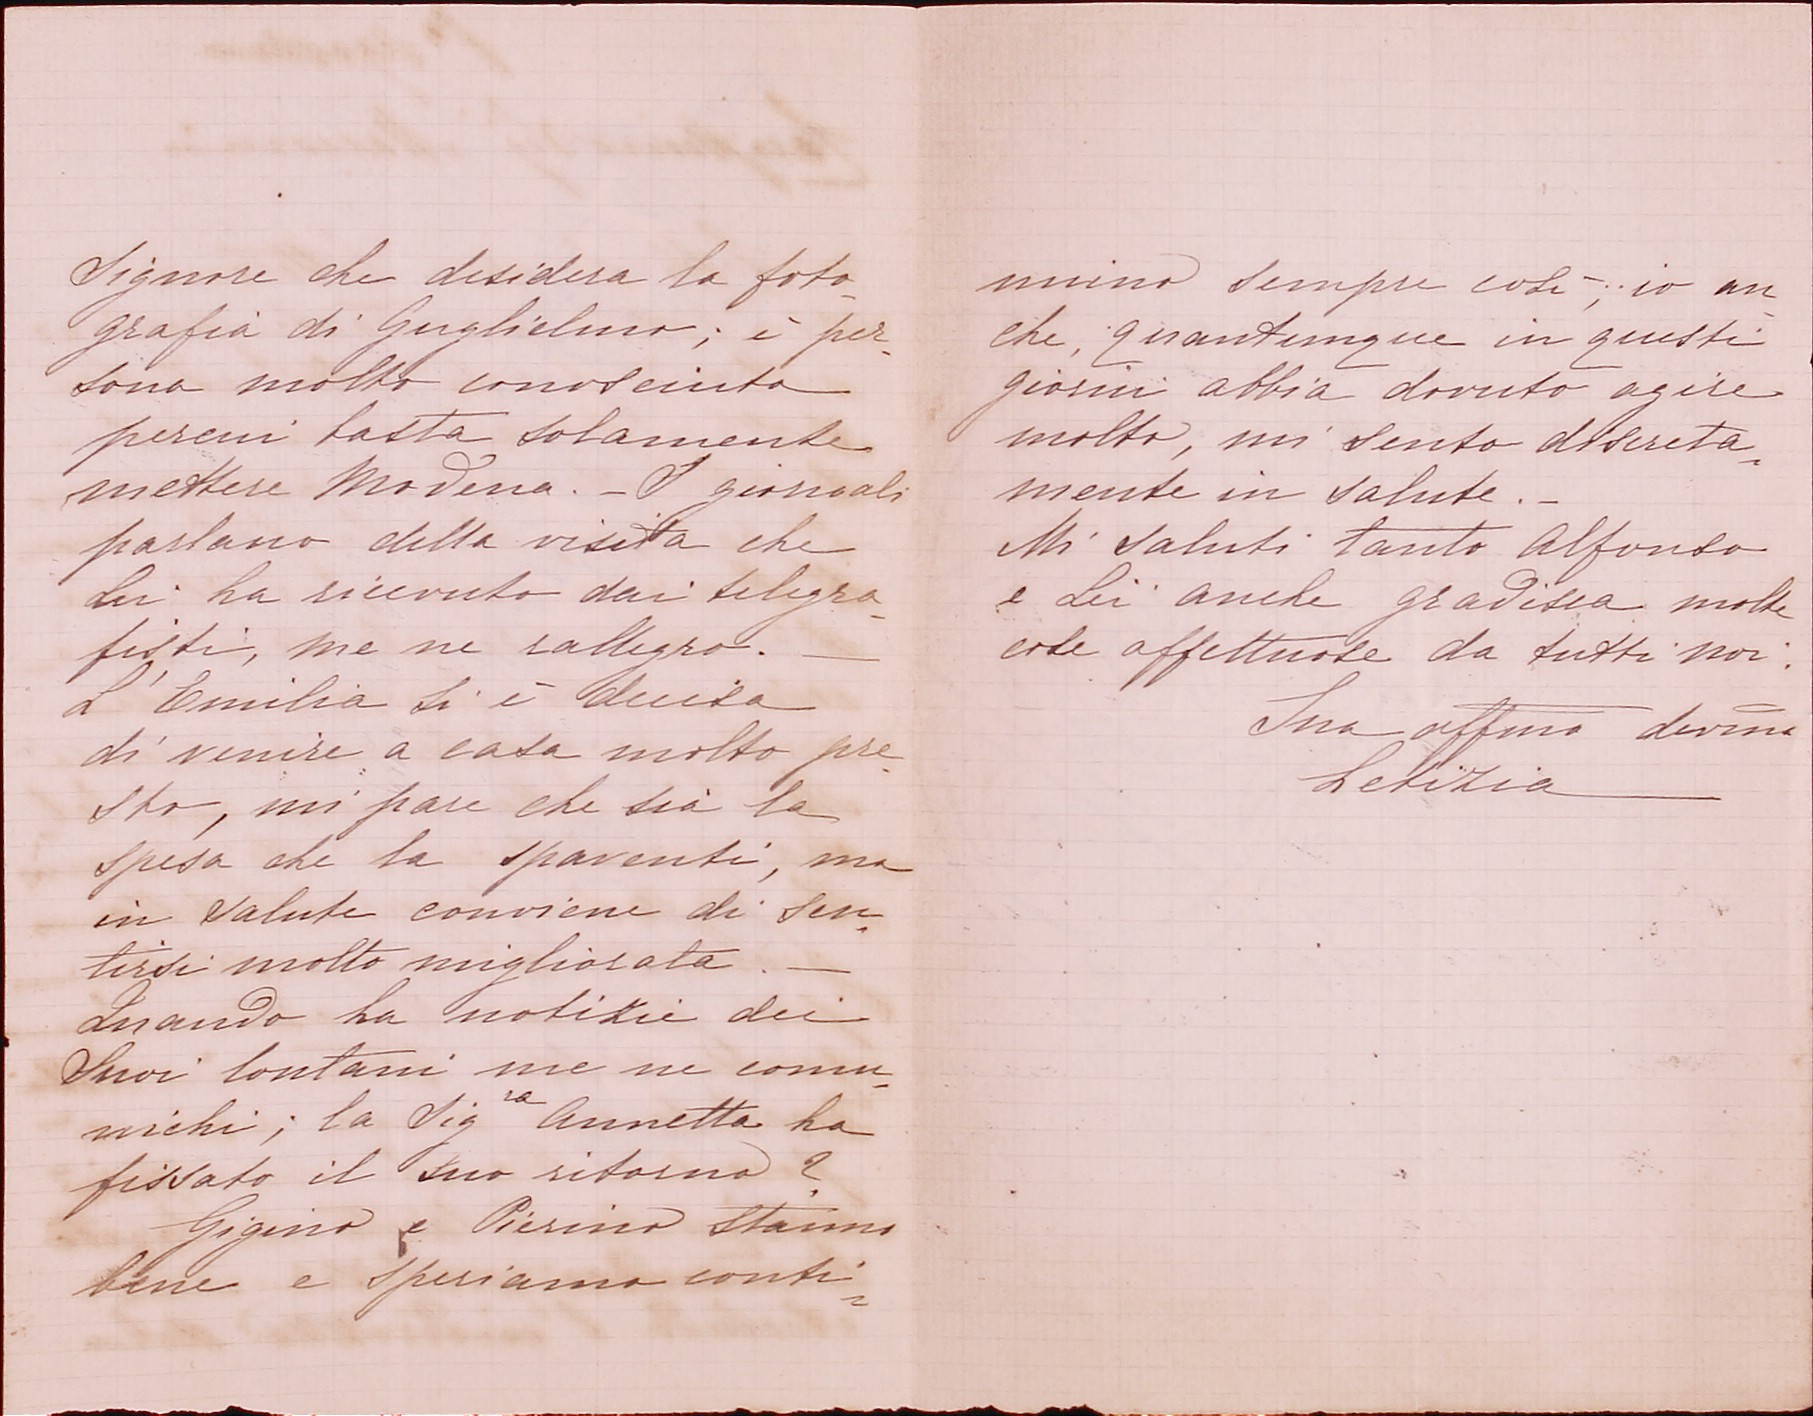 Signore che desidera la foto-
grafia di Guglielmo; è per-
sona molto conosciuta
percui basta solamente
mettere Modena. - I giornali
parlano della visita che
Lei ha ricevuto dai telegra-
fisti, me ne rallegro. -
L'Emilia si è decisa
di venire a casa molto pre-
sto, mi pare che sia la
spesa che la spaventi, ma
in salute conviene di sen-
tirsi molto migliorata. -
Quando ha notizie dei
Suoi lontani me ne comu-
nichi; la Sigra Annetta ha
fissato il suo ritorno?
Gigino e Pierino stanno
bene e speriamo conti-
nuino sempre così; io an-
che, quantunque in questi
giorni abbia dovuto agire
molto, mi sento discreta-
mente in salute. -
Mi saluti tanto Alfonso
e Lei anche gradisca molte
cose affettuose da tutti noi.
Sua affma devma
Letizia